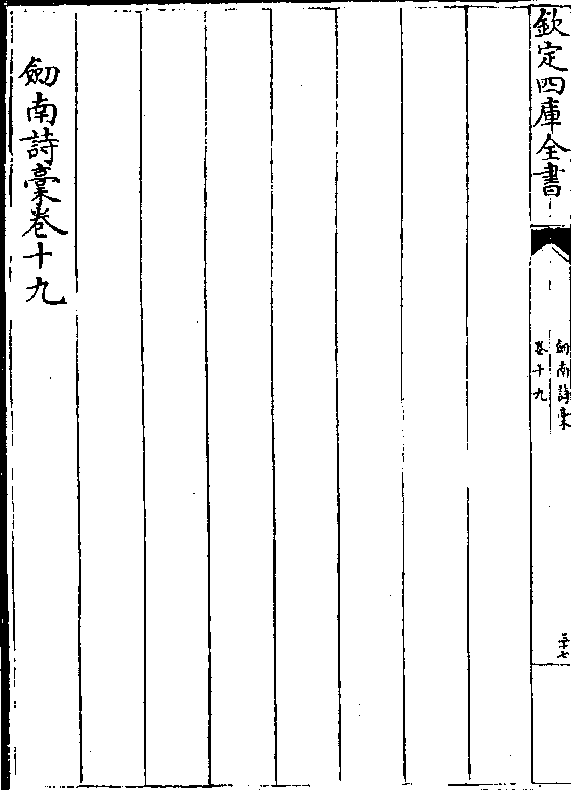 欽定四庫全書
劒南詩稾
卷十九
三十七
劒南詩稾卷十九